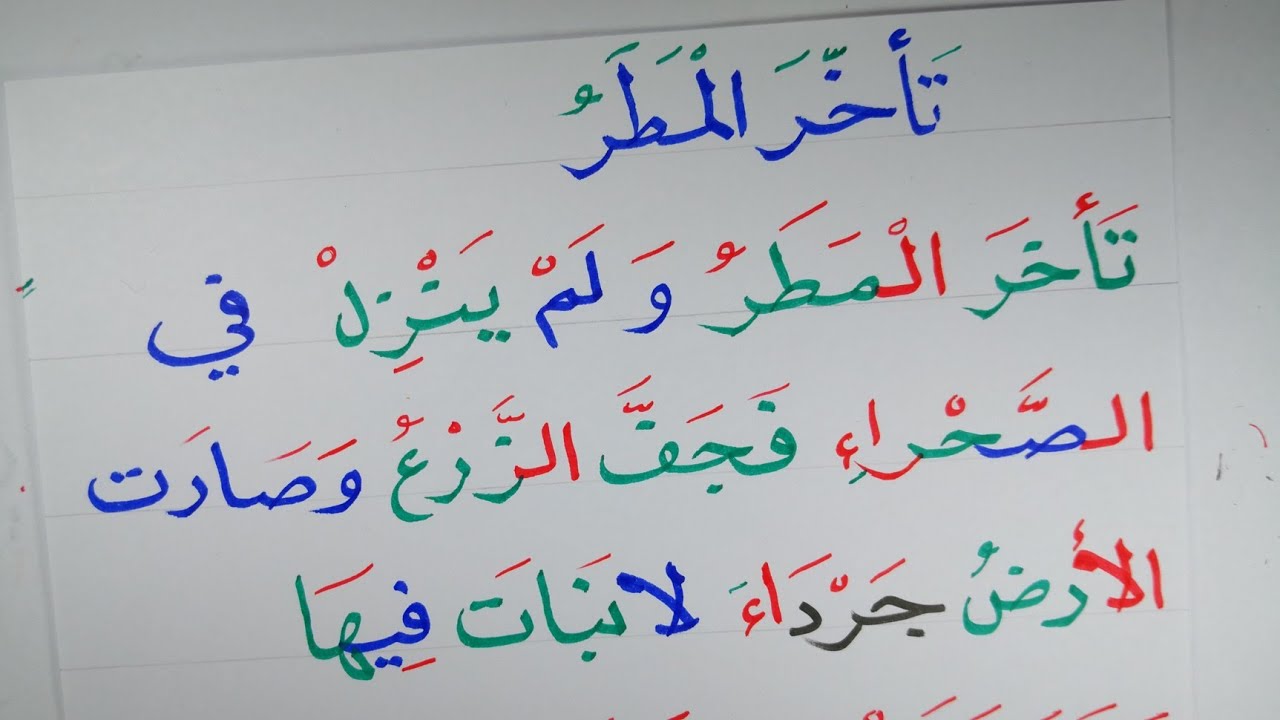 تَأخّرَ الْمَطَرُ
تَأخرَ الْمَطَرُ وَ لَمْ يَنْزِلْ في
الصَّحْراءِ فَجَفَّ الزَّرْعُ وَصَارَت
الأرضُ جَرْدَاءَ لا نَبَاتَ فِيهَا